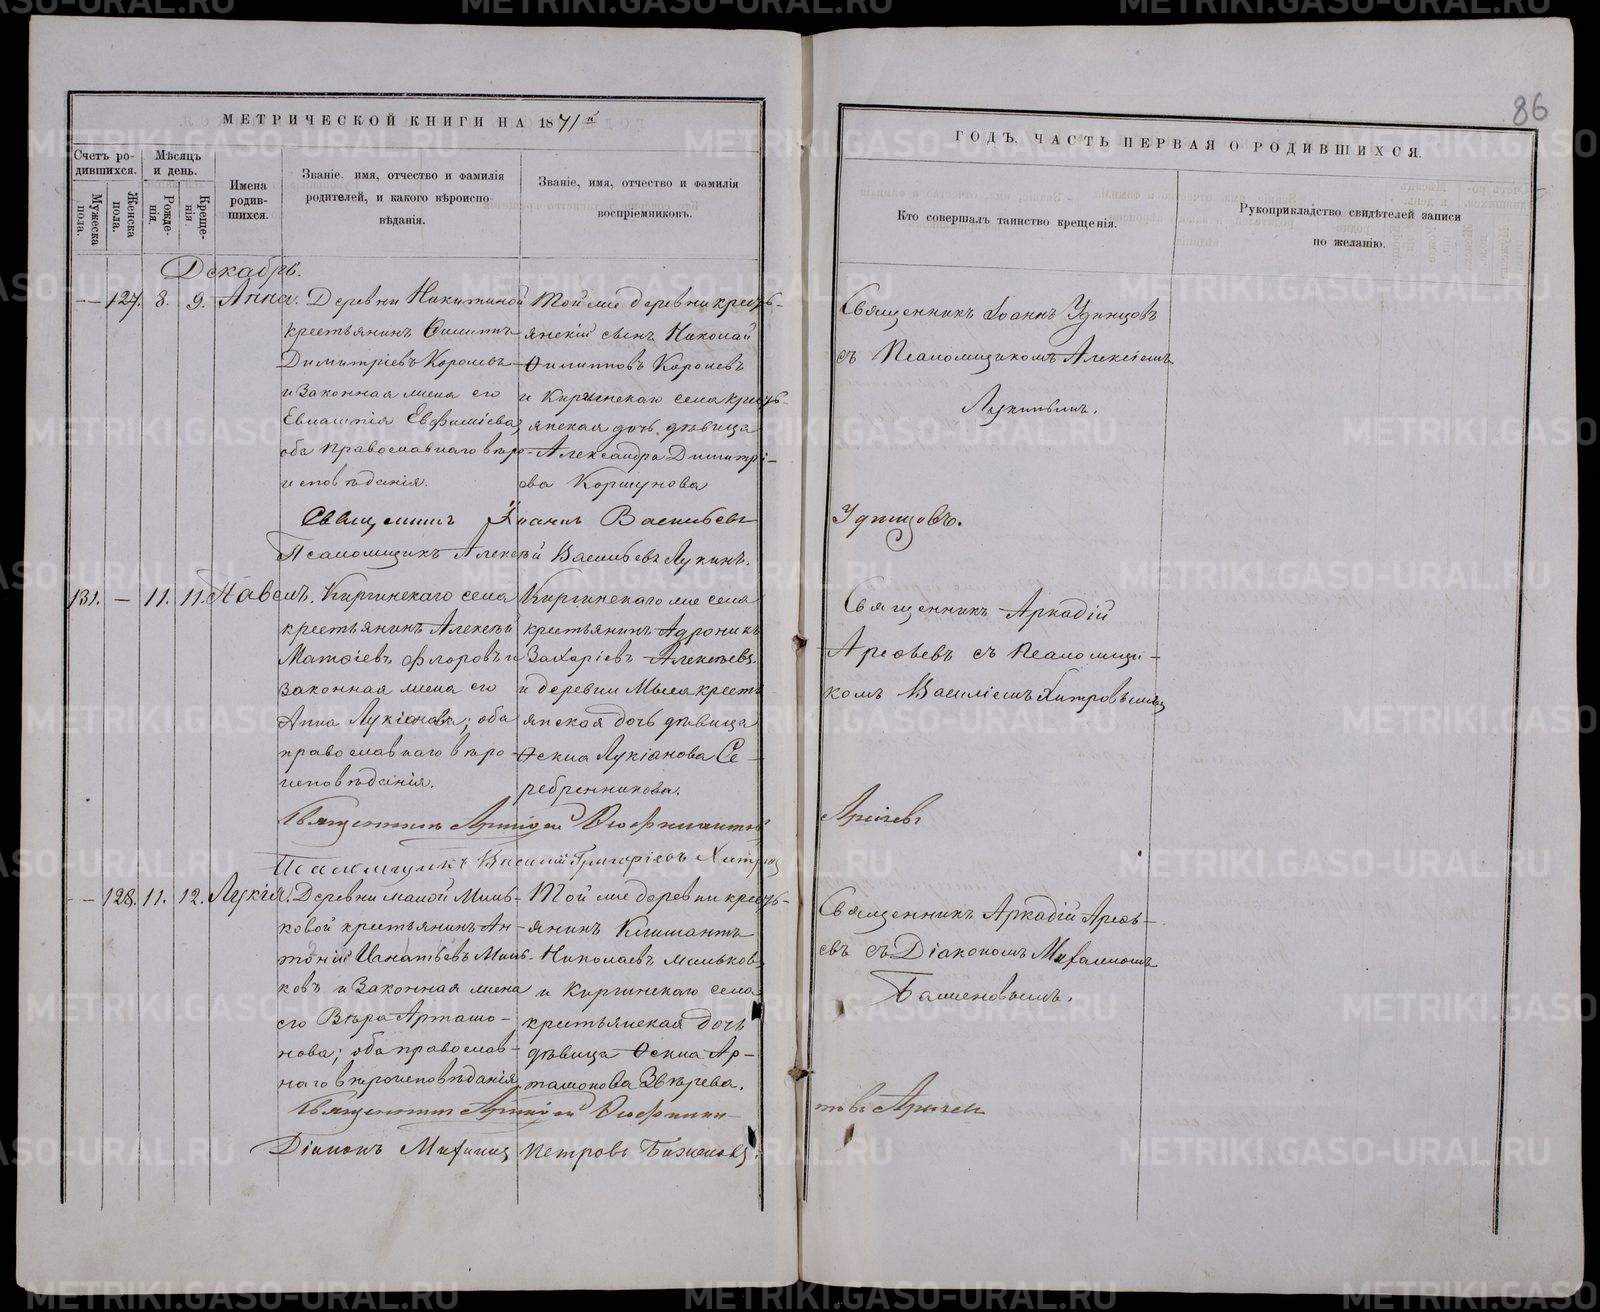 86
МЕТРИЧЕСКОЙ КНИГИ НА 1871й
ГОДЪ, ЧАСТЬ ПЕРВАЯ О РОДИВШИХСЯ.
Счетъ родившихся.
Мужеска пола.
Женска пола.
Мѣсяцъ и день.
Рожденія.
Крещенія.
Имена родившихся.
Званіе, имя, отчество и фамилія родителей, и какого вѣроисповѣданія.
Званіе, имя, отчество и фамилія воспріемниковъ.
Кто совершалъ таинство крещенія.
Рукоприкладство свидѣтелей записи по желанію.
Декабрь.
— 127. 8. 9. Анна.
Деревни Никитиной
крестьянинъ Филиппъ
Димитріевъ Королевъ
и законная жена его
Евлампія Евфиміева,
оба православнаго вѣро-
исповѣданія.
Той же деревни кресть-
янскій сынъ Николай
Филипповъ Королевъ
и Киргинскаго села кресть-
янская дочь, дѣвица
Александра Димитрі-
ова Коршунова
Священникъ Іоаннъ Удинцовъ
съ Псаломщикомъ Алексіемъ
Лукинымъ.
Священникъ Іоаннъ Васильевъ
Удинцовъ.
Псаломщикъ Алексѣй Васильевъ Лукинъ.
131. — 11. 11. Павелъ.
Киргинскаго села
крестьянинъ Алексѣй
Матѳіевъ Флоровъ и
законная жена его
Анна Лукіанова; оба
православнаго вѣро-
исповѣданія.
Киргинскаго же села
крестьянинъ Адроникъ
Захаріевъ Алексѣевъ
и деревни Мыса кресть-
янская дочь дѣвица
Ѳекла Лукіанова Се-
ребренникова.
Священникъ Аркадій
Арефьевъ съ псаломщи-
комъ Василіемъ Хитровымъ
Священникъ Аркадій
Псаломщикъ Василій Григоріевъ
— 128. 11. 12. Лукія.
Деревни малой Миль-
ковой крестьянинъ Ан-
тоній Игнатьевъ Миль-
ковъ и законная жена
его Вѣра Арташо-
нова; оба православ-
наго вѣроисповѣданія
Той же деревни кресть-
янинъ Климантъ
Николаевъ Мильковъ
и Киргинскаго села
крестьянская дочь
дѣвица Ѳекла Ар-
ташонова Звѣрева.
Священникъ Аркадій Арефь-
евъ съ Діакономъ Михаиломъ
Баженовымъ.
Священникъ Аркадій
Діаконъ Михаилъ Петровъ Баженовъ.
METRIKI.GASO-URAL.RU